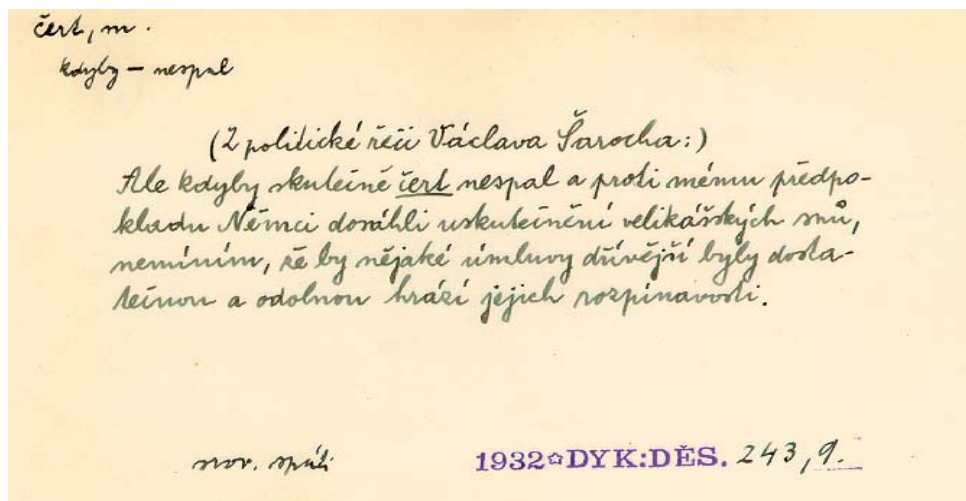 čert, m.
kdyby – nespal
(Z politické řeči Václava Šarocha:)
Ale kdyby skutečně čert nespal a proti mému předpo-
kladu Němci dosáhli uskutečnění velikášských snů,
nemíním, že by nějaké úmluvy dřívější byly dosta-
tečnou a odolnou hrází jejich rozpínavosti.
srov. spáti
1932☆DYK:DĚS. 243, 9.